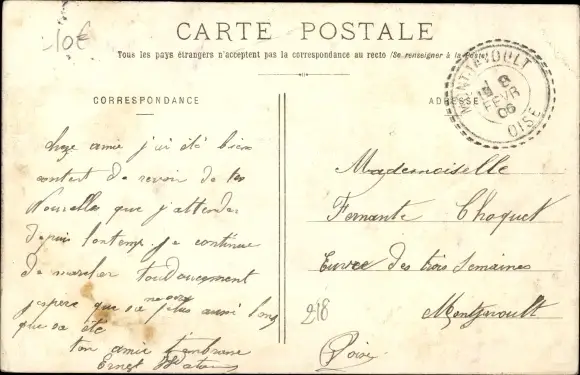 10€
CARTE POSTALE
Tous les pays étrangers n'acceptent pas la correspondance au recto (Se renseigner à la Poste)
CORRESPONDANCE
ADRESSE
MONTJAVOULT
8
FEVR
06
OISE
chere amie j'ai été bien
contert de revoir de tes
Nouvelle que j'attender
depuis lontemp. je continue
de marcher toudoucement
j'espere que sa plus aussi long
que sa été
ton amie
Ernest
Mademoiselle
Fernante Choquet
Euvre des trois Semaines
Montjavoult
218
Loise